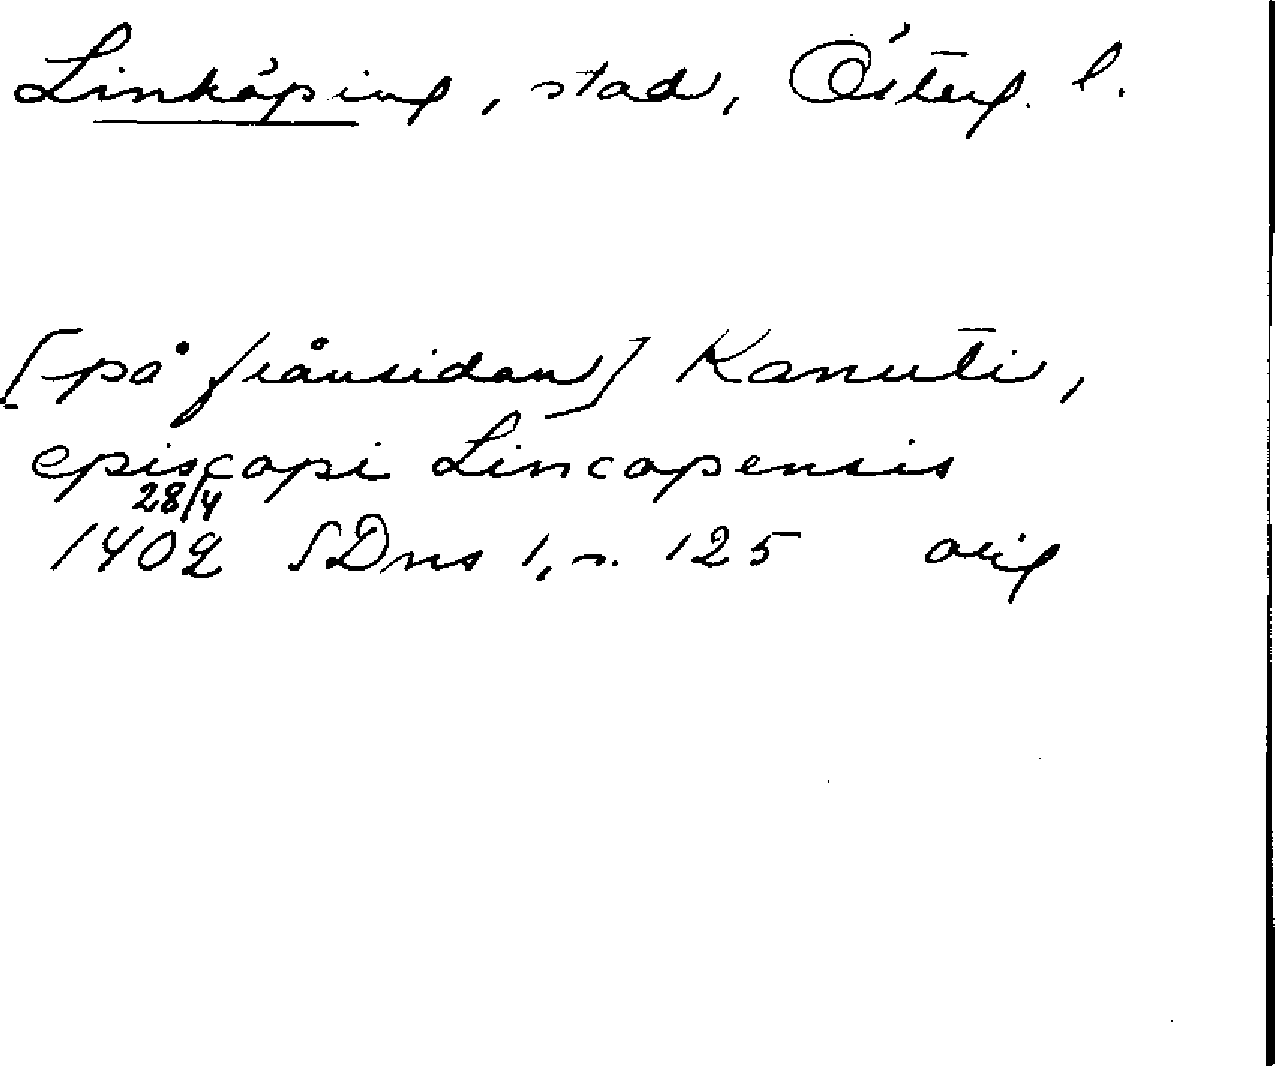 Linköping, stad, Österg. l.
[på frånsidan] Kanuti,
episcopi Lincopensis
28/4
1402 SDns 1, n. 125 orig